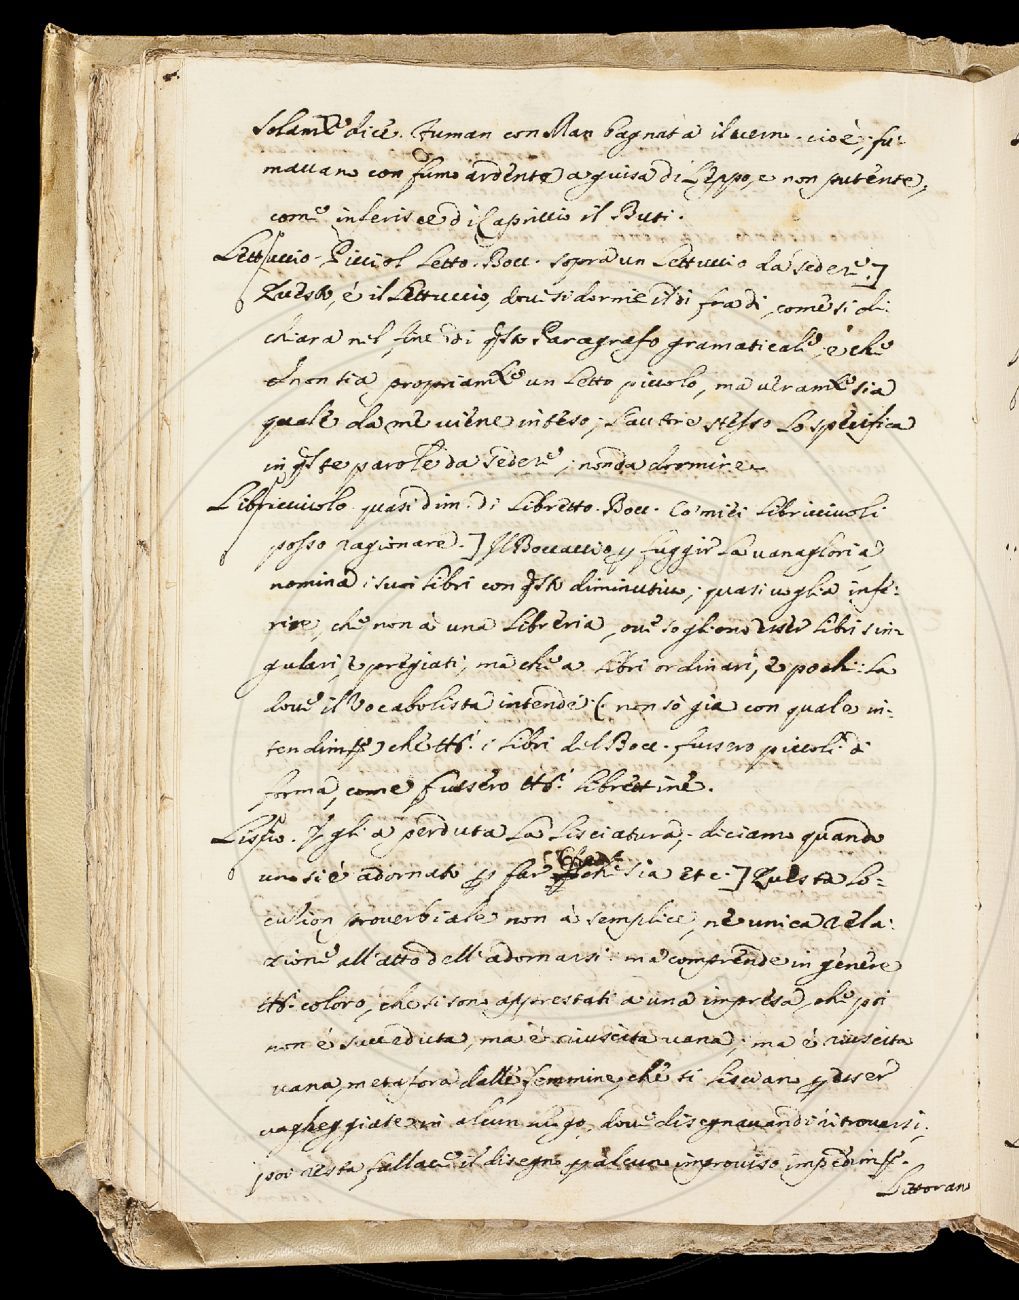 solam.te dice. Fuman con Man bagnata il verno. cioè, fu-
mauano con fumo ardente a guisa di Leppo, e non putente,
come inferisce di Capriccio il Buti.
Lettuccio. Picciol Letto. Bocc. sopra un Lettuccio da sedere.]
Questo, é il Lettuccio, doue si dorme il dì fra dì, come si di-
chiara nel fine di q.sto Paragrafo gramaticale, è che
non sia propriam.te un Letto piccolo, ma ueram.te sia
quale da me uiene inteso; l'autore stesso lo specifica
in q.ste parole da sedere, non da dormire.
Libricciuolo. quasi dim. di Libretto. Bocc. Co' miei libricciuoli
posso ragionare.] Il Boccaccio p fuggir la uanagloria,
nomina i suoi libri con q.sto diminutiuo, quasi uoglia infe-
rire, che non à una libreria, oue sogliono esser libri sin-
gulari, e pregiati, ma che a libri ordinari, e pochi: La
doue il Vocabolista intende (non só già con quale in-
tendim.to) che tt.i i libri del Bocc. fussero piccoli di
forma, come fussero tt.i librettine.
Liscio. Egli a perduta la Lisciatura; diciamo quando
uno si è adornato p far che sia etc.] Questa lo-
cution prouerbiale non à semplice, nè unica rela-
zione all'atto dell'adornarsi: ma comprende in genere
tt.i coloro, che si sono apprestati a una impresa, che poi
non è succeduta, ma è riuscita uana; ma è riuscita
uana, metafora dalle femmine, che si lisciano p esser
uagheggiate in alcun luogo, doue disegnauan di ritrouarsi,
poi resta fallace il disegno p alcun improuiso impedim.to.
Littoran